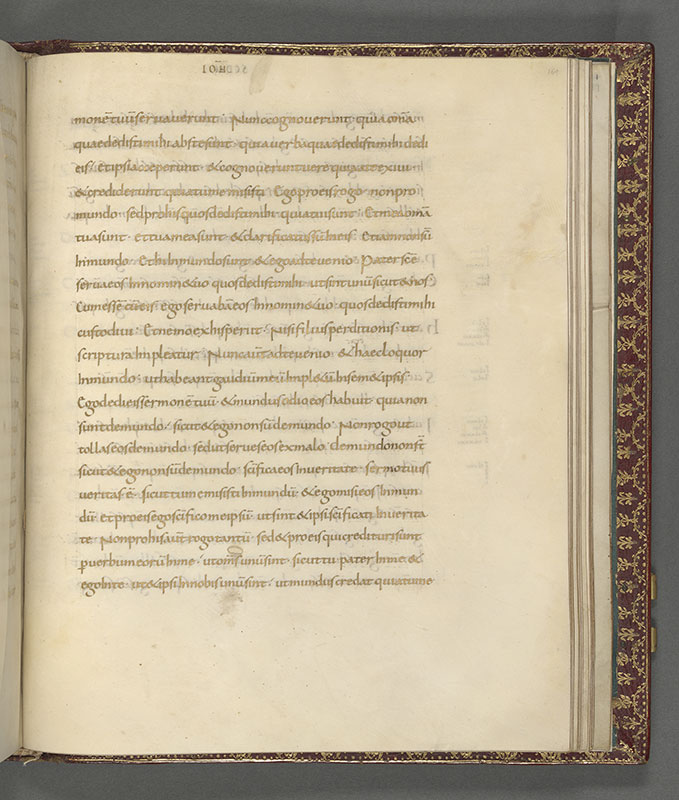 SCDM IOH
monē tuū servaverunt · Nunc cognoverunt quia omā
quae dedisti mihi abs te sunt · quia verba quae dedisti mihi dedi
eis · et ipsi acceperunt · & cognoverunt vere quia a te exivi
& crediderunt quia tu me misisti · Ego pro eis rogo · non pro
mundo · sed pro his quos dedisti mihi · quia tui sunt · Et mea omā
tua sunt · et tua mea sunt · & clarificatus sū in eis · Et iam non sū
in mundo · Et hi in mundo sunt · & ego ad te venio · Pater scē
serva eos in nomine tuo quos dedisti mihi · ut sint unū sicut & nos ·
Cum essē cū eis · ego servabā eos in nomine tuo · quos dedisti mihi
custodivi · Et nemo ex his perit · Nisi filius perditionis · ut
scriptura impleatur · Nunc aūt ad te venio · & haec loquor
in mundo · ut habeant gaudiū meū impl&ū in sem&ipsis ·
Ego dedi eis sermonē tuū · & mundus odio eos habuit · quia non
sunt de mundo · sicut & ego non sū de mundo · Non rogo ut
tollas eos de mundo · sed ut serves eos ex malo · de mundo non st̄
sicut & ego non sū de mundo · scīfica eos in veritate · sermo tuus
veritas ē · sicut tu me misisti in mundū · & ego misi eos in mun
dū · et pro eis ego scīfico me ipsū · ut sint & ipsi scīficati in verita
te · Non pro his aūt rogo tantū · sed & pro eis qui credituri sunt
p verbum eorū in me · ut omīs unū sint · sicut tu pater in me · &
ego in te · ut & ipsi in nobis unū sint · ut mundus credat quia tu me